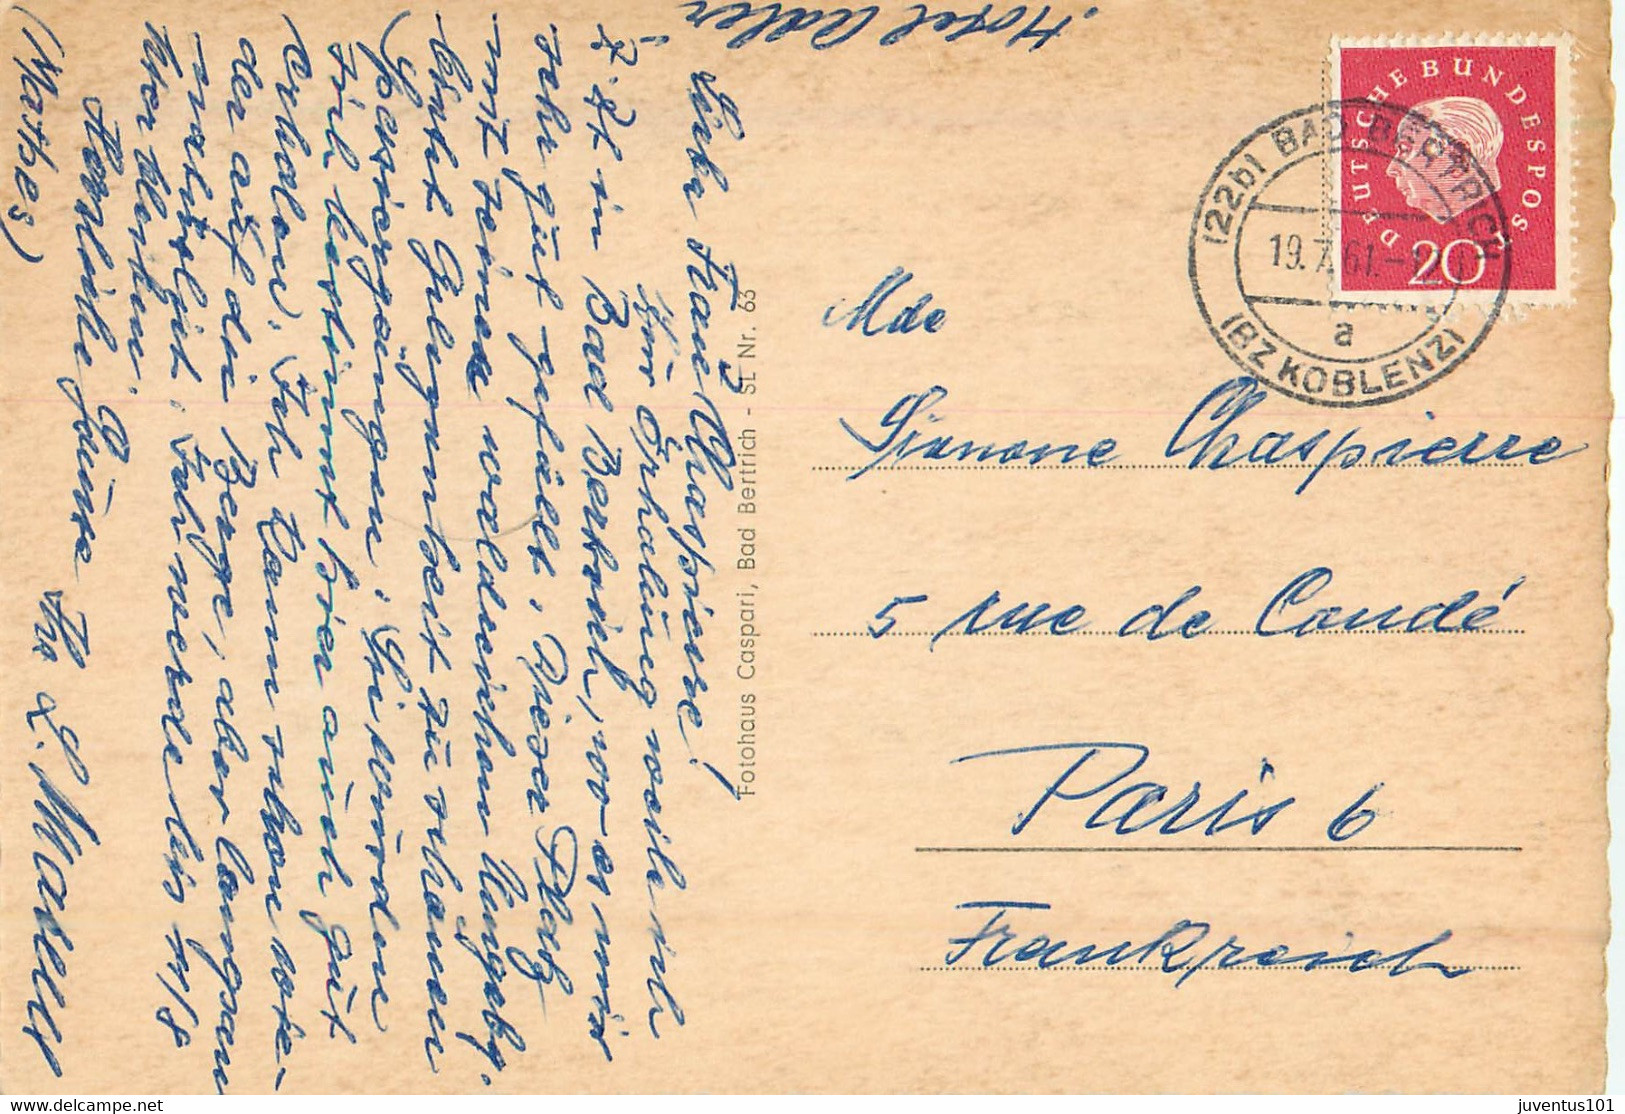 Hotel Adler
Liebe Frau Chaspierre!
Zur Erhalung weile ich
z. Zt. in Bad Bertrich, wo es mir
sehr gut gefällt. Dieser Platz
mit seiner waldreichen Umgebg.
bietet Gelegenheit zu schönen
Spaziergängen. Sie würden
sich bestimmt hier auch gut
erholen. Ich kann schon wie-
der auf die Berge, aber langsam
natürlich. Ich werde bis 4/8
hier bleiben.
Herzliche Grüsse
Ihr L.
DEUTSCHE BUNDESPOST
20
(22b) BAD BERTRICH
19.7.61.-12
a
(BZ KOBLENZ)
Mde
Simone Chaspierre
5 rue de Condé
Paris 6
Frankreich
Fotohaus Caspari, Bad Bertrich - St. Nr. 63
juventus101